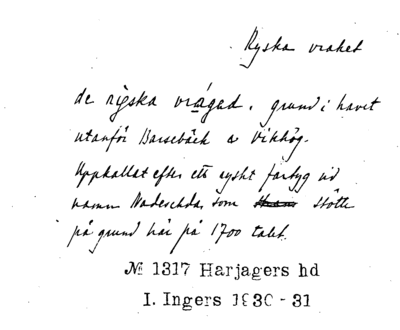 Ryska vraket
de rỹska vrágad, grund i havet
utanför Barsebäck o Vikhög.
Uppkallat efter ett ryskt fartyg vid
namn Nadeschda, som stötte
på grund här på 1700 talet.
№ 1317 Harjagers hd
I. Ingers 1930 - 31